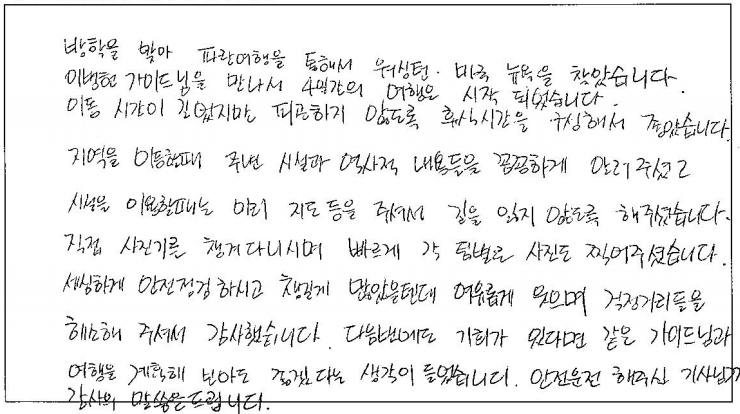 방학을 맞아 파란여행을 통해서 워싱턴. 미국 뉴욕을 찾았습니다.
이병헌 가이드님을 만나서 4일간의 여행은 시작 되었습니다.
이동 시간이 길었지만 피곤하지 않도록 휴식시간을 구성해서 좋았습니다.
지역을 이동할때 주변 시설과 역사적 내용들을 꼼꼼하게 알려주셨고
시설을 이용할때는 미리 지도 등을 주셔서 길을 잃지 않도록 해주셨습니다.
직접 사진기를 챙겨다니시며 빠르게 각 팀별로 사진도 찍어주셨습니다.
세심하게 안전점검 하시고 챙길게 많았을텐데 여유롭게 웃으며 걱정거리들을
해소해 주셔서 감사했습니다. 다음번에도 기회가 있다면 같은 가이드님과
여행을 계획해 보아도 좋겠다는 생각이 들었습니다. 안전운전 해주신 기사님께
감사의 말씀을 드립니다.